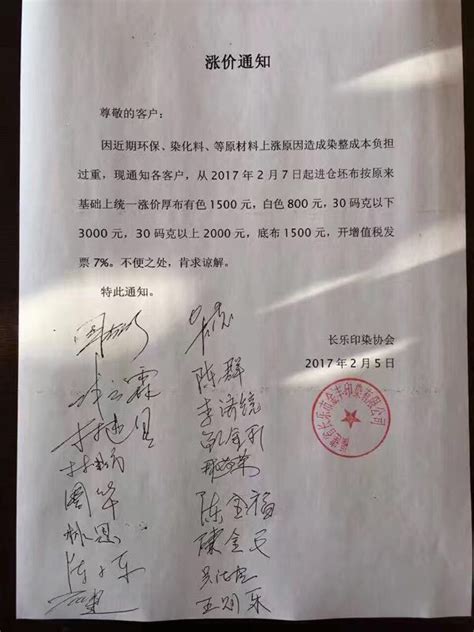 涨价通知
尊敬的客户：
因近期环保、染化料、等原材料上涨原因造成染整成本负担
过重，现通知各客户，从 2017 年 2 月 7 日起进仓坯布按原来
基础上统一涨价厚布有色 1500 元，白色 800 元，30 码克以下
3000 元，30 码克以上 2000 元，底布 1500 元，开增值税发
票 7%。不便之处，肯求谅解。
特此通知。
长乐印染协会
2017 年 2 月 5 日
陈群
周华
陈金福
陳金